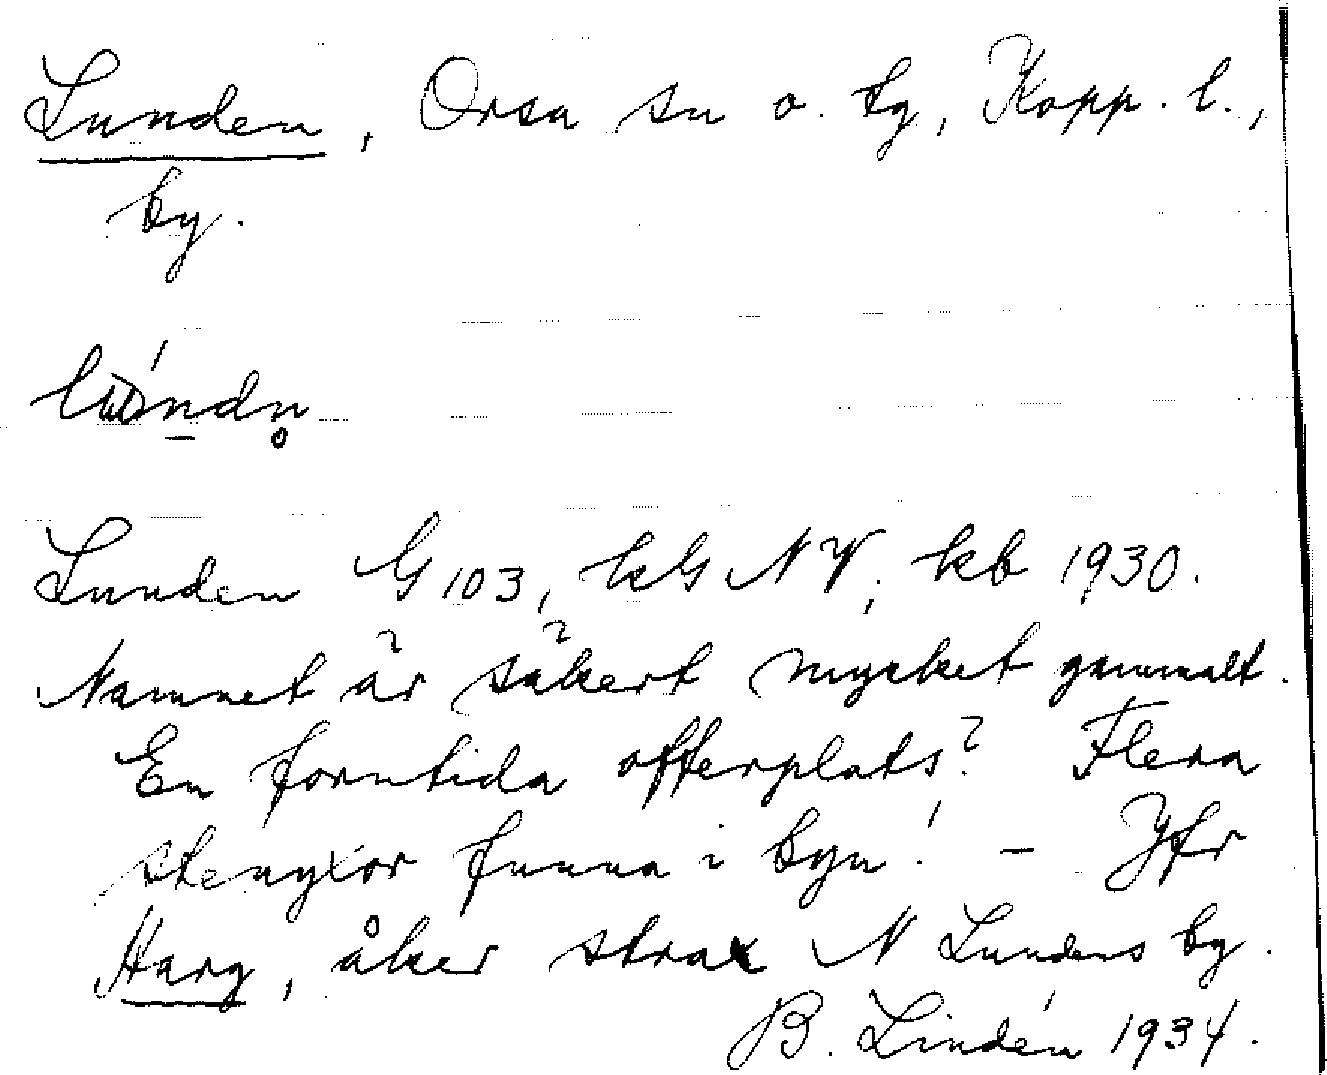 Lunden, Orsa sn o. tg, Kopp. l.,
by.
Lunden G 103, kG NV; kb 1930.
Namnet är säkert mycket gammalt.
En forntida offerplats? Flera
stenyxor funna i byn! – Jfr
Harg, åker strax N Lundens by.
B. Lindén 1934.